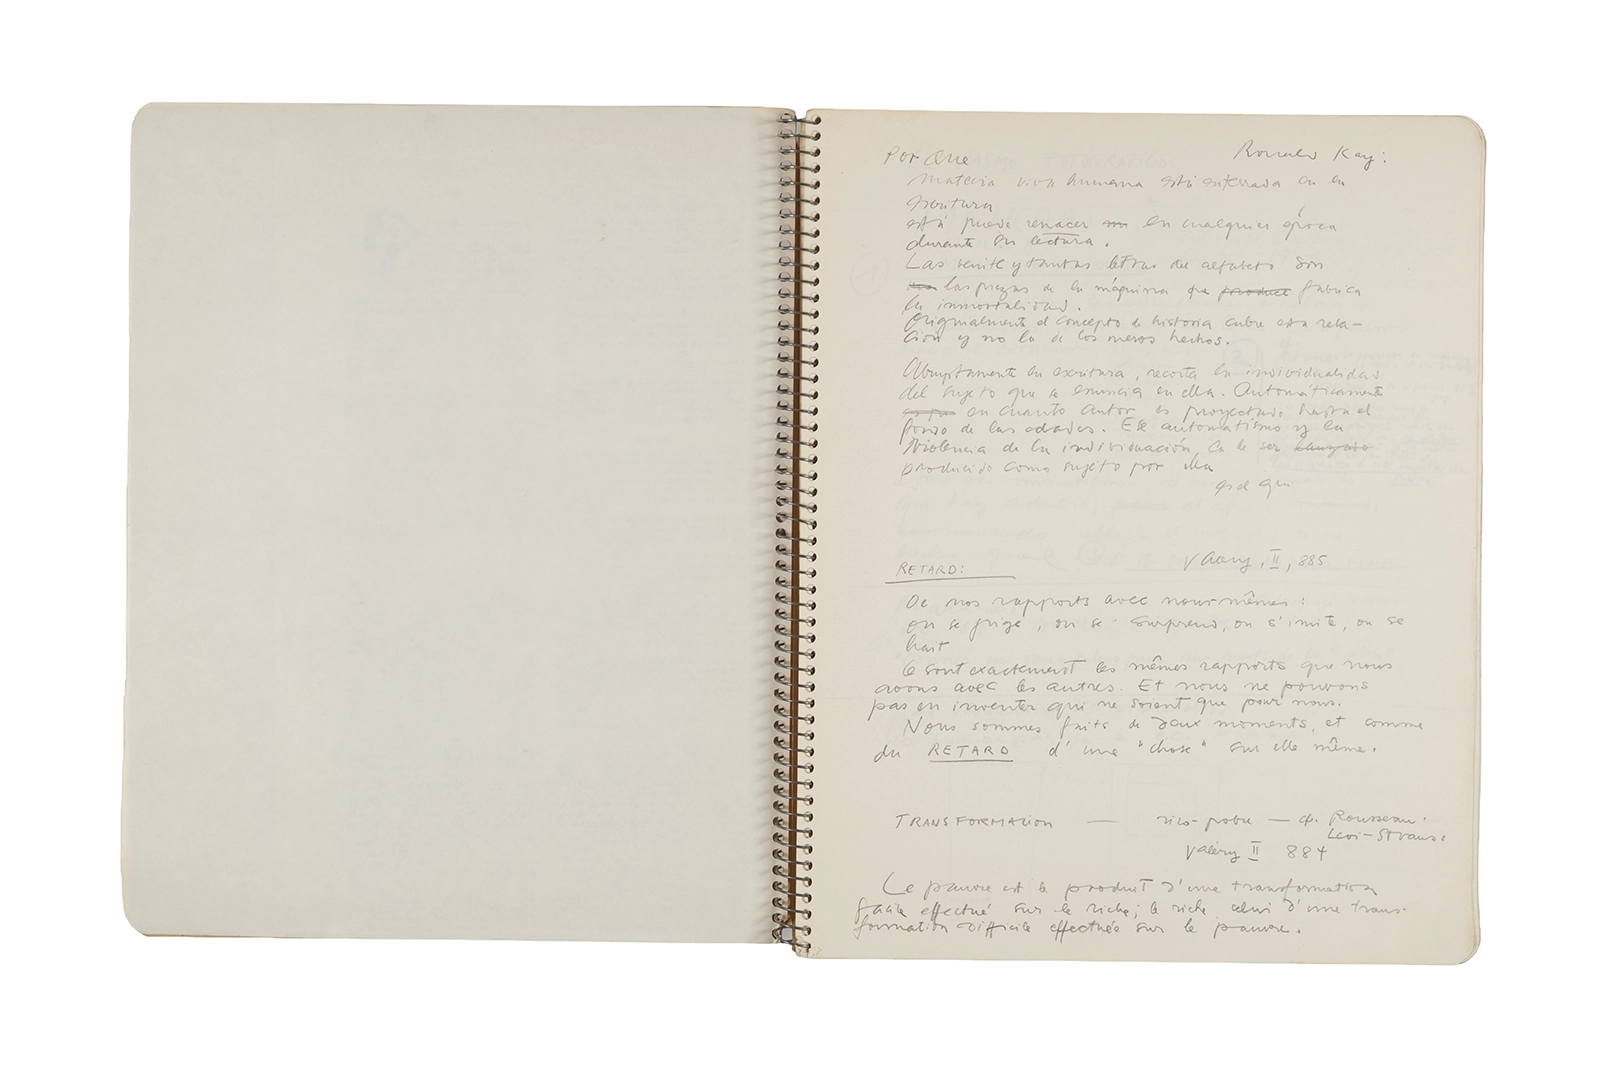 Por Que Ronald Kay:
materia viva humana está enterrada en la
escritura
está puede renacer en cualquier época
durante su lectura.
Las veinte y tantas letras del alfabeto son
las piezas de la máquina que product fabrica
la inmortalidad.
Originalmente el concepto de historia cubre esta rela-
ción y no la de los meros hechos.
Abruptamente la escritura, recorta la individualidad
del sujeto que se enuncia en ella. Automáticamente
en cuanto autor es proyectado hasta el
fondo de las edades. Ese automatismo y la
violencia de la individuación, la de ser
producido como sujeto por ella
es el que
RETARD: Valéry, II, 885
De nos rapports avec nous-mêmes:
on se frise, on se surprend, on s'imite, on se
hait
Ce sont exactement les mêmes rapports que nous
avons avec les autres. Et nous ne pouvons
pas en inventer qui ne soient que pour nous.
Nous sommes faits de deux moments, et comme
du RETARD d'une "chose" sur elle même.
TRANSFORMACION — rico-pobre — cf. Rousseau.
Levi-Strauss
Valéry II 884
Le pauvre est le produit d'une transformation
facile effectué sur le riche; le riche celui d'une trans-
formation difficile effectuée sur le pauvre.